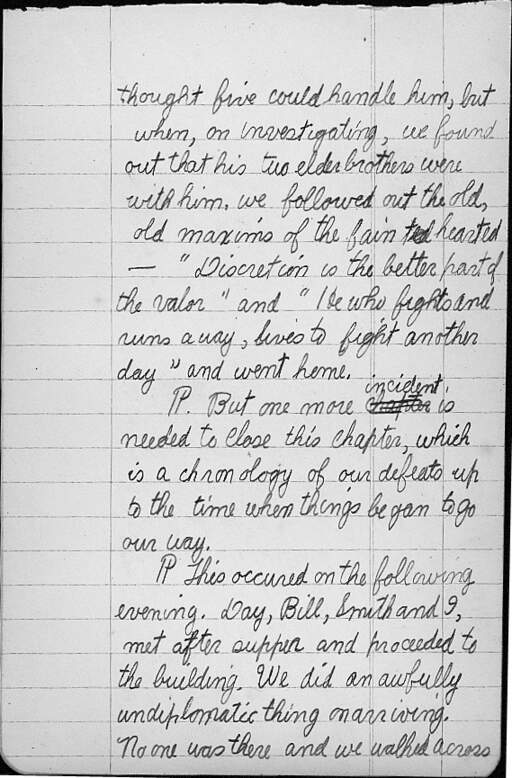 thought five could handle him, but
when, on investigating, we found
out that his two elder brothers were
with him, we followed out the old,
old maxims of the fain ted hearted
— "Discretion is the better part of
the valor" and "He who fights and
runs away, lives to fight another
day" and went home.
incident
P. But one more chapter is
needed to close this chapter, which
is a chronology of our defeats up
to the time when things began to go
our way.
P This occured on the following
evening. Day, Bill, Smith and I,
met after supper and proceeded to
the building. We did an awfully
undiplomatic thing on arriving.
No one was there and we walked across